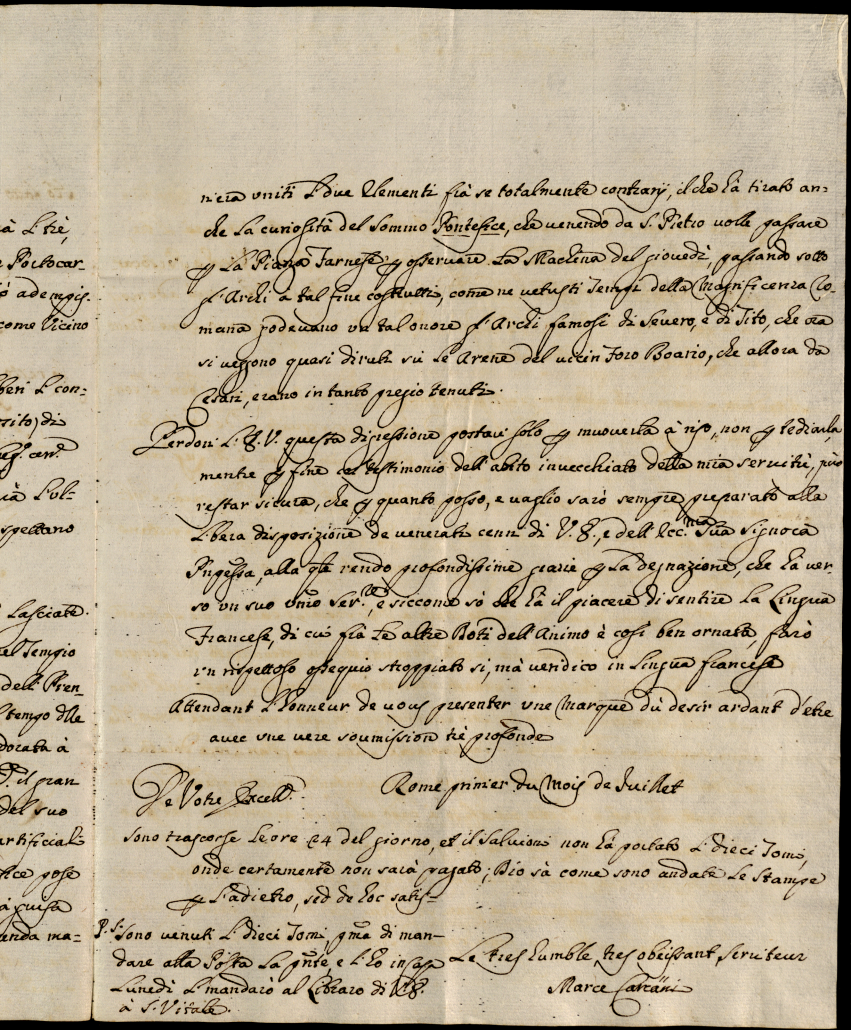 à l. trè,
e Portocar-
ò adempis.
come Vicino
beri l con:
sito) di
ià l'ul-
spettano
Lasciate.
el Tempio
dell' Pren_
l tempo dlle
dorata à
il gran
del suo
artificial
fice pose
à guisa
enda ma=
n'era vniti l due Elementi frà se totalmente contrarij, il che hà tirato an:
che la curiosità del Sommo Pontefice, che venendo da S. Pietro volle passare
p La Piazza Farnese p osservare La Machina del giovedì, passando sotto
gl'Archi à tal fine costrutti, come ne vetusti Tempi della Magnificenza Ro-
mana godevano vn tal onore gl'Archi famosi di Severo, e di Tito, che ora
si veggono quasi diruti sù le Arene del vicin Foro Boario, che allora da
Cesari, erano in tanto pregio tenuti.
Perdoni L. E. V. questa digressione portavi solo p muoverla à riso, non p tediarla,
mentre p fine col testimonio dell'abito invecchiato della mia servitù, può
restar sicura, che p quanto posso, e vaglio sarò sempre preparato alla
libera disposizione de venerati cenni di V. E., e dell'Ecc.ma Sua Signora
Pngssa, alla qle rendo profondissime grazie p La degnazione, che hà ver-
so vn suo vmo Ser.re, e siccome sò che hà il piacere di sentire La Lingua
Francese, di cui frà Le altre Doti dell'Animo è così ben ornata, farò
vn rispettoso ossequio stroppiato sì, mà veridico in Lingua francese
Attendant L'honneur de vous presenter vne Marque du desir ardant d'etre
avec vne vere soumission trè profonde
De Votre Excell.
Rome primier du Mois de Juillet
Sono trascorse le ore 24 del giorno, et il Salvioni non hà portato l dieci Tomi,
onde certamente non sarà pagato; Dio sà come sono andate Le Stampe
p l'adietro, sed de hoc satis-
P.S. Sono venuti l dieci Tomi pma di man-
dare alla Posta La pnte, e l'hò in casa
Lunedì l mandarò al Libraro di V.E.
à S. Vitale.
Le tres humble, tres obeissant, serviteur
Marce Carcani